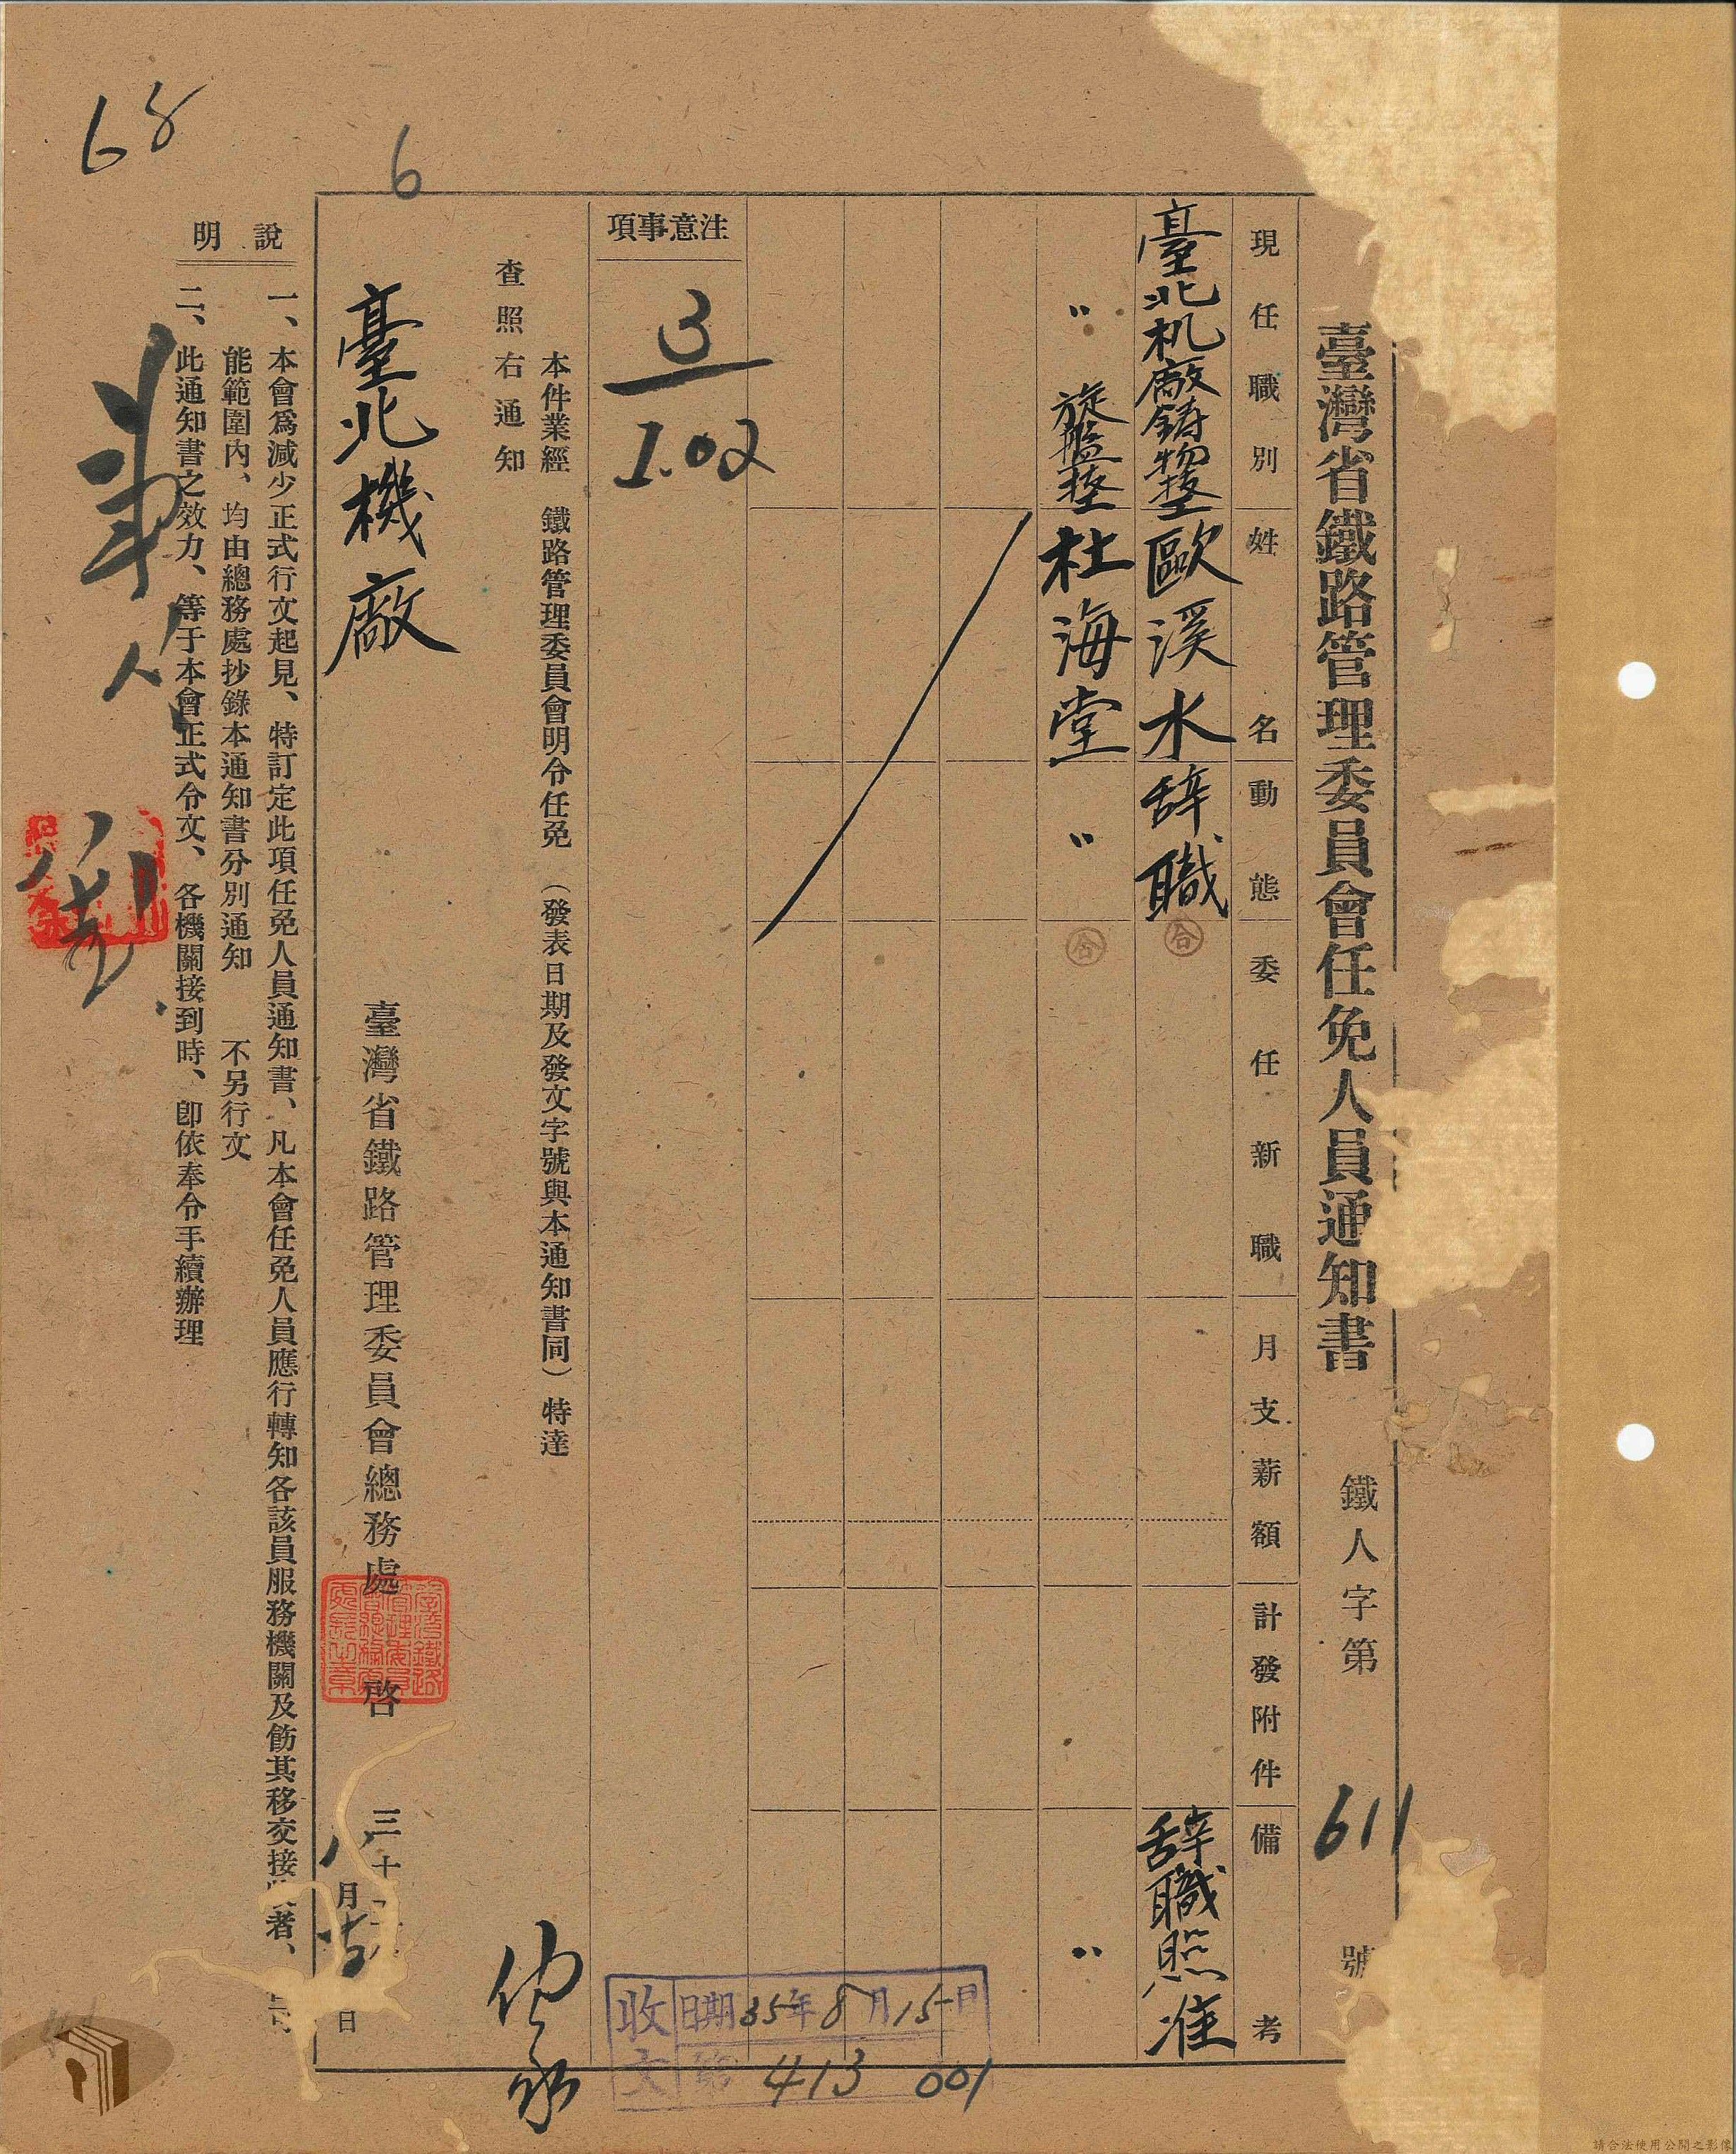 臺灣省鐵路管理委員會任免人員通知書
鐵人字第 611 號
現任職別 姓名 動態 委任新職 月支薪額 計發附件 備考
臺北机廠鋳物 歐溪水 辞職 合 辞職照准
〃 旋盤 杜海堂 〃 合 〃
注意事項
3
1.02
本件業經 鐵路管理委員會明令任免 (發表日期及發文字號與本通知書同) 特達
查照右通知
臺北機廠
臺灣省鐵路管理委員會總務處 啓 三十
八月 日
說明
一、本會爲減少正式行文起見、特訂定此項任免人員通知書、凡本會任免人員應行轉知各該員服務機關及飭其移交接 者、
能範圍內、均由總務處抄錄本通知書分別通知 不另行文
二、此通知書之效力、等于本會正式令文、各機關接到時、卽依奉令手續辦理
收文 日期 35年8月15日
第 413 001
68
6
請合法使用公開之影像